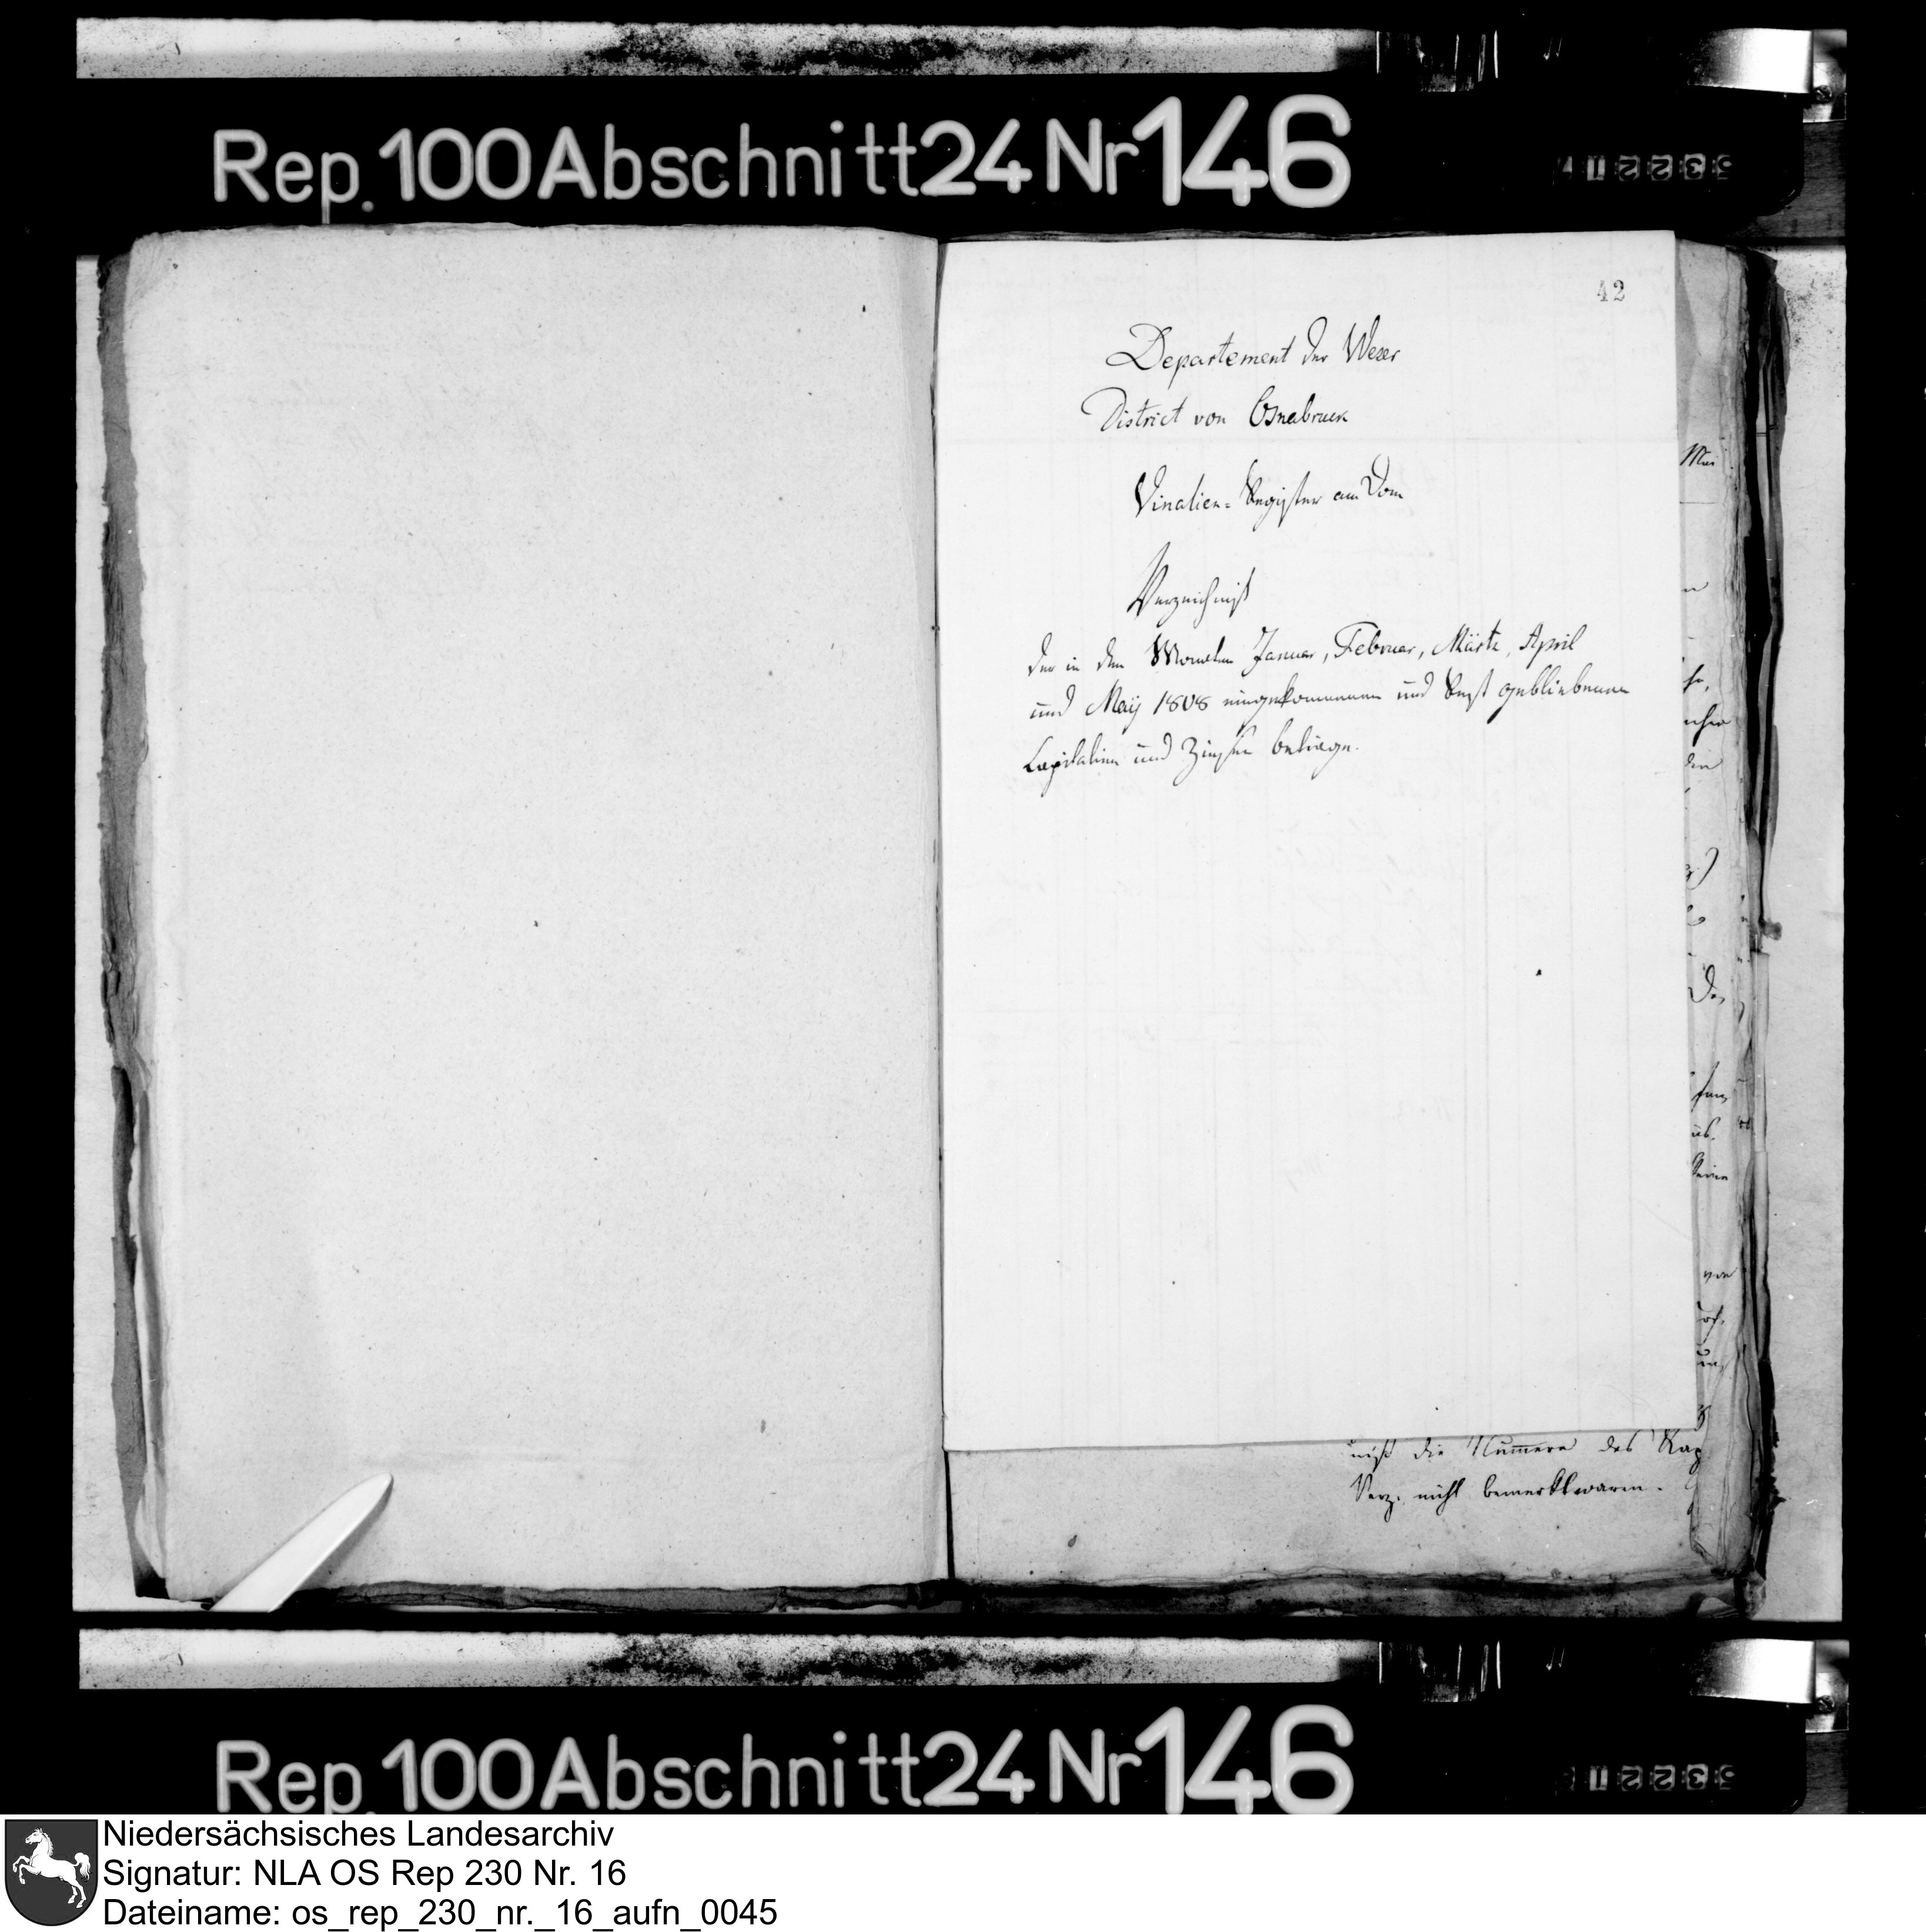 Rep. 100 Abschnitt 24 Nr 146
42
Departement der Weser
District von Osnabruck
Vinalien-Register am Dom
Verzeichniß
der in den Monaten Januar, Februar, Märtz, April
und Maij 1808 eingekommenen und Rest gebliebenen
Capitalien und Zinsen beträge.
Mai
niß die Nummern des Kap
Verz. nicht bemerkt waren.
Rep. 100 Abschnitt 24 Nr 146
Niedersächsisches Landesarchiv
Signatur: NLA OS Rep 230 Nr. 16
Dateiname: os_rep_230_nr._16_aufn_0045